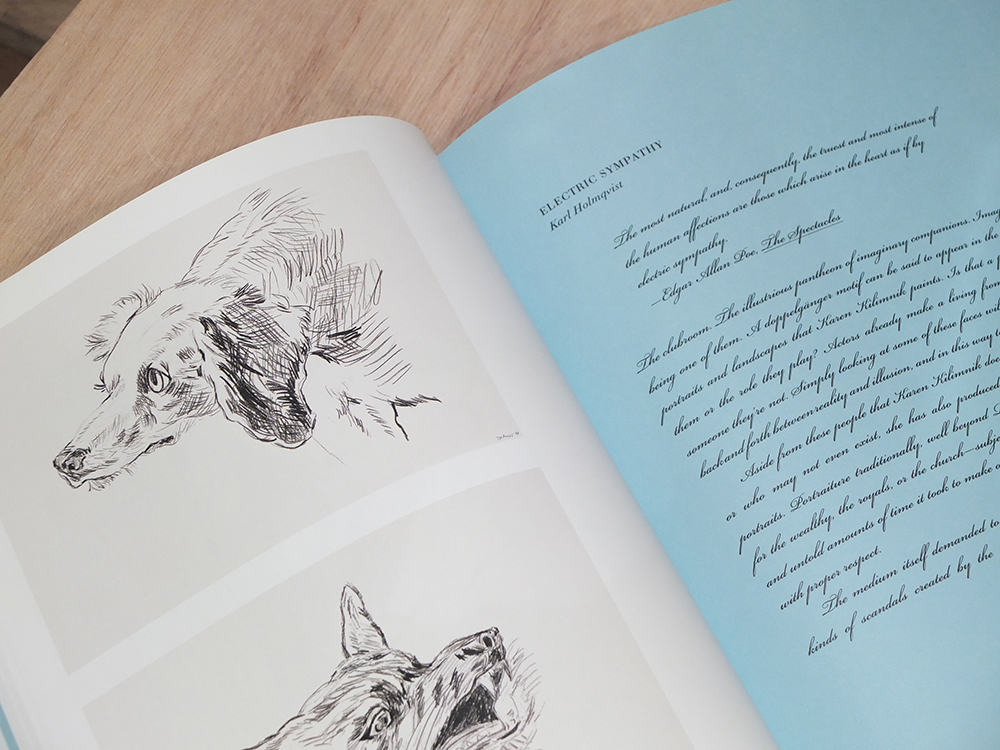 ELECTRIC SYMPATHY
Karl Holmqvist
The most natural, and, consequently, the truest and most intense of
the human affections are those which arise in the heart as if by
electric sympathy.
—Edgar Allan Poe, The Spectacles
The clubroom. The illustrious pantheon of imaginary companions.
being one of them. A doppelgänger motif can be said to appear in the
portraits and landscapes that Karen Kilimnik paints. Is that a
them or the role they play? Actors already make a living from
someone they're not. Simply looking at some of these faces
back and forth between reality and illusion, and in this way
Aside from these people that Karen Kilimnik
or who may not even exist, she has also produced
portraits. Portraiture traditionally, well beyond
for the wealthy, the royals, or the church—
and untold amounts of time it took to make
with proper respect.
The medium itself demanded
kinds of scandals created by the